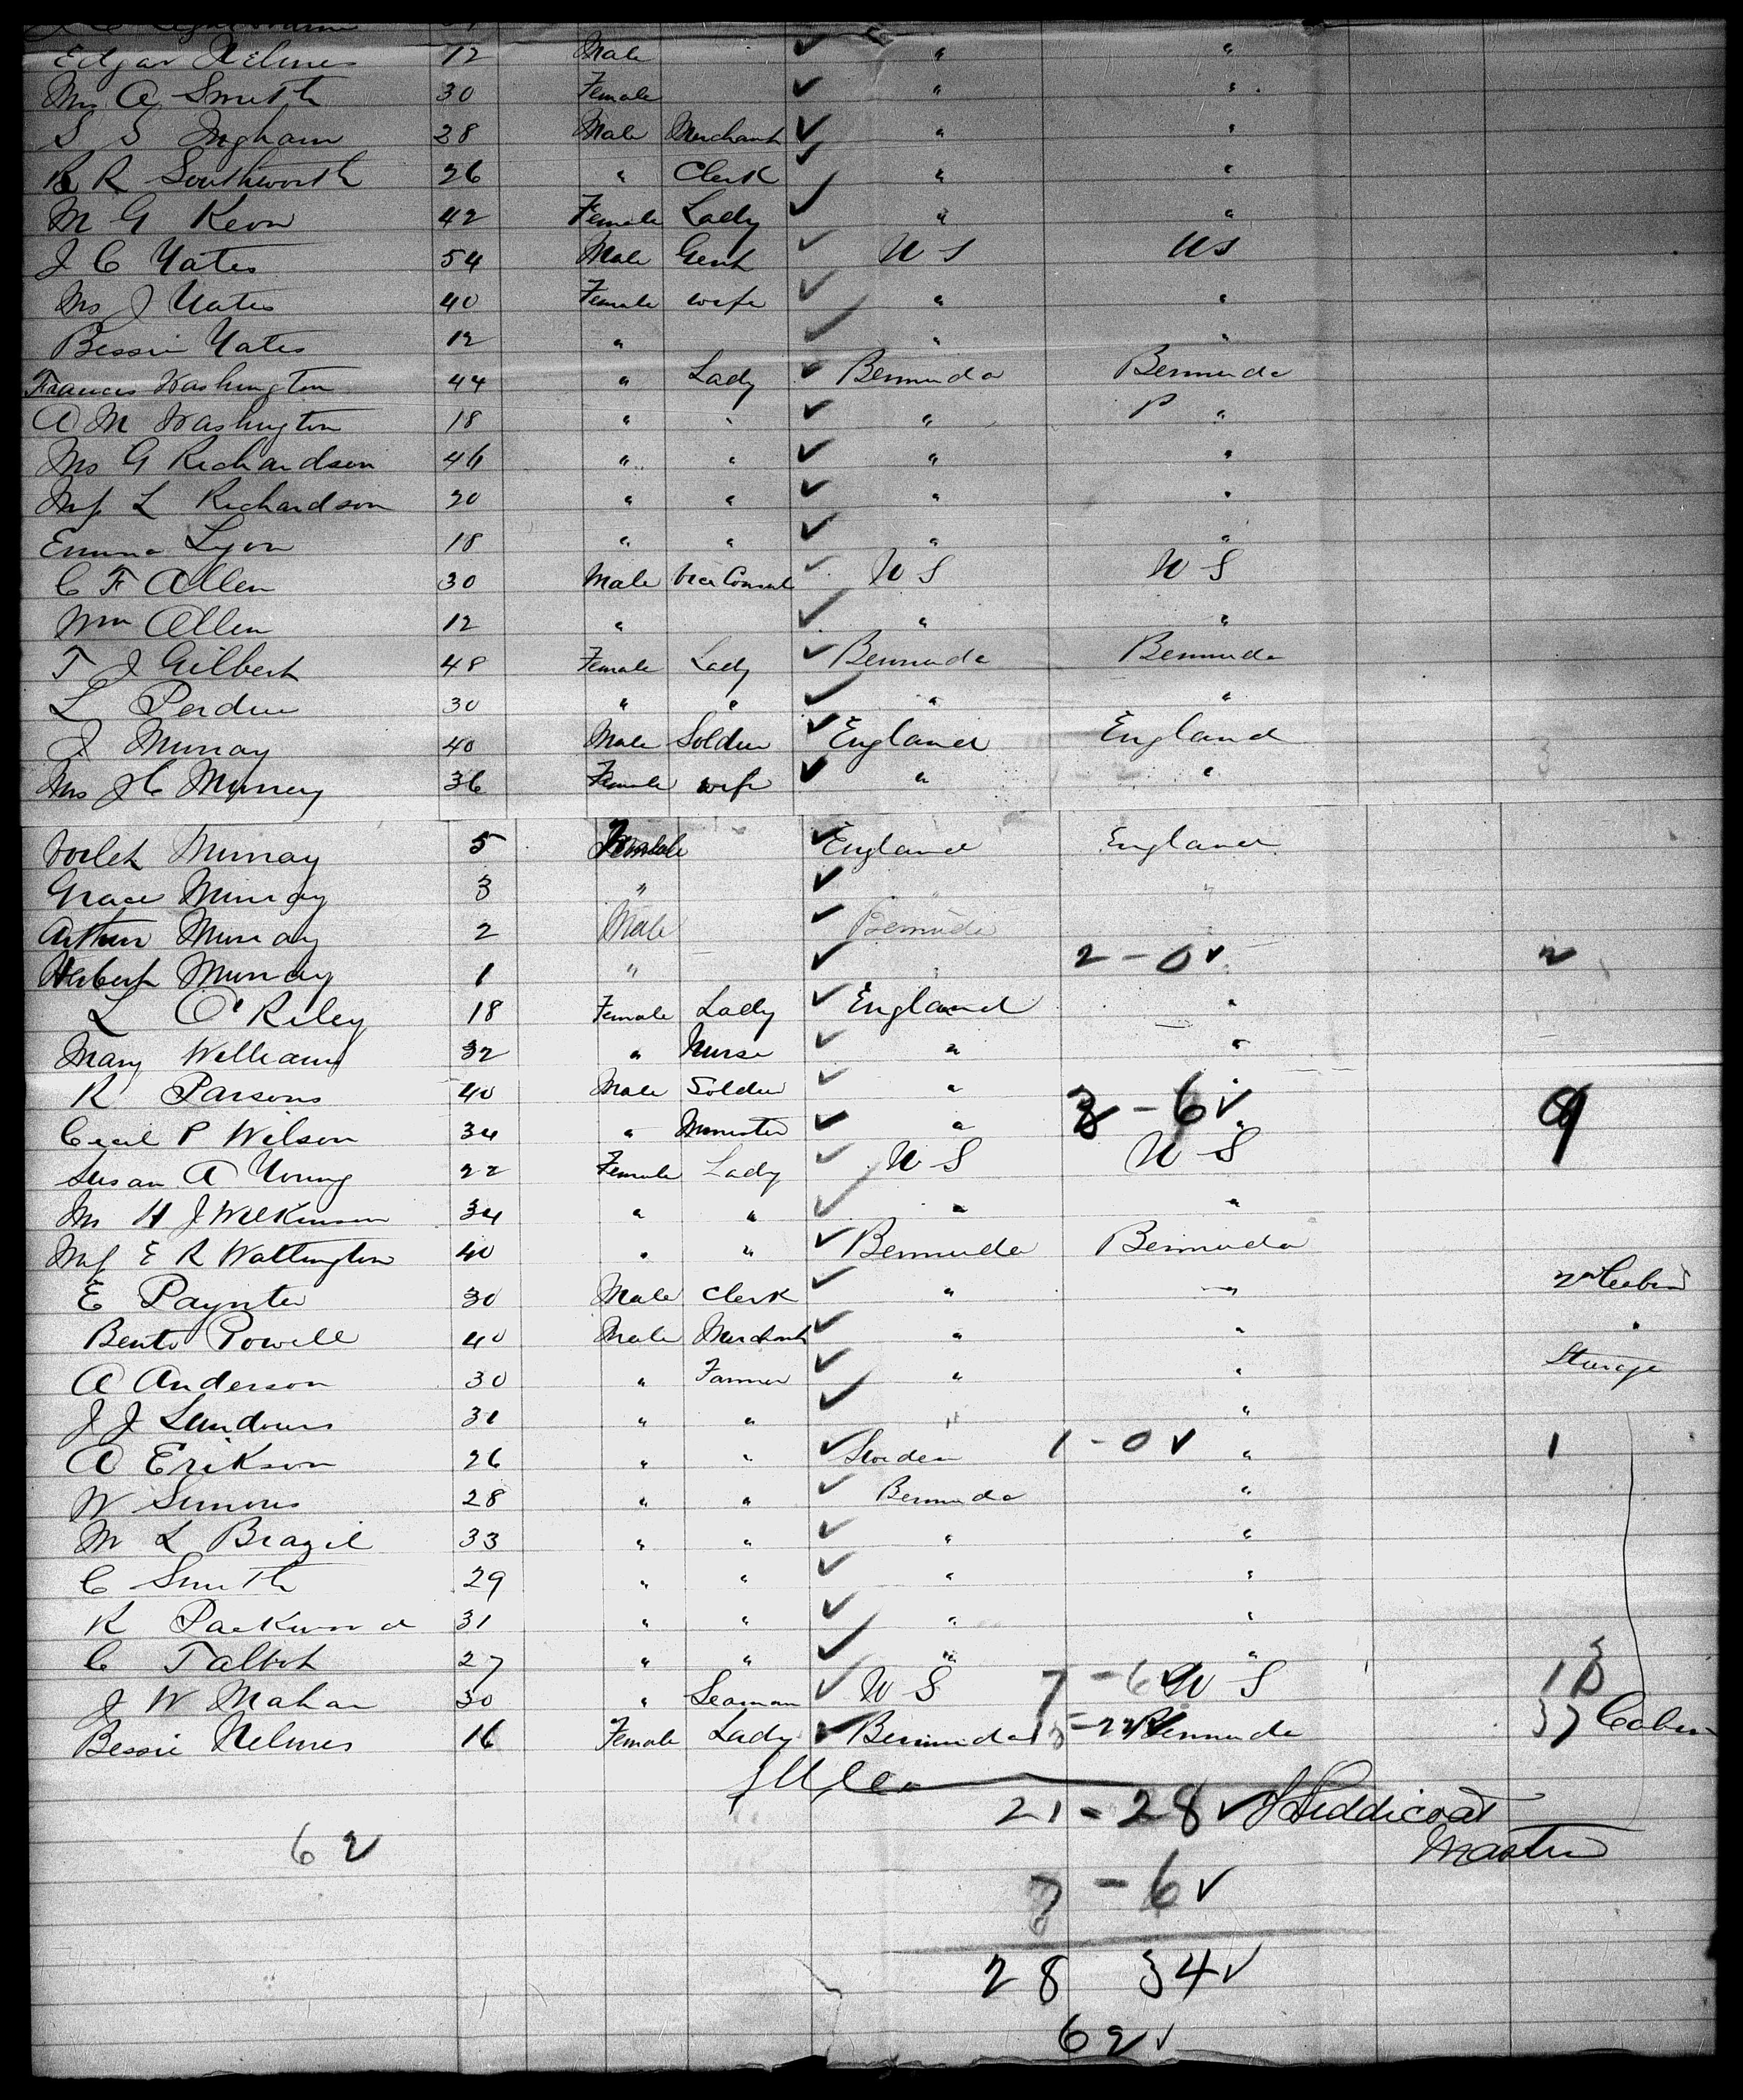 Edgar Nelmes 12 Male " "
Mrs A Smith 30 Female " "
S S Ingham 28 Male Merchant " "
R Southworth 26 " Clerk " "
M G Keon 42 Female Lady " "
J C Yates 54 Male Gent U S U S
Mrs J Yates 40 Female wife " "
Bessie Yates 12 " " "
Frances Washington 44 " Lady Bermuda Bermuda
A M Washington 18 " " " "
Mrs G Richardson 46 " " " "
Miss L Richardson 20 " " " "
Emma Lyon 18 " " " "
C F Allen 30 Male Vice Consul U S U S
Wm Allen 12 " " "
T J Gilbert 48 Female Lady Bermuda Bermuda
L Perdue 30 " " " "
J Murray 40 Male Soldier England England
Mrs J C Murray 36 Female wife " "
Violet Murray 5 Female England England
Grace Murray 3 " " "
Arthur Murray 2 Male Bermuda
Herbert Murray 1 " " 2 - 0 ✓ 2
L O'Riley 18 Female Lady England "
Mary Williams 32 " Nurse " "
R Parsons 40 Male Soldier " "
Cecil P Wilson 34 " Minister " 3 - 6 ✓ " 9
Susan A Young 22 Female Lady U S U S
Mrs H J Wilkinson 34 " " " "
Miss E R Wattington 40 " " Bermuda Bermuda
E Paynter 30 Male Clerk " " 2nd Cabin
Bento Powell 40 Male Merchant " " "
A Anderson 30 " Farmer " " Sturage
J J Sandours 31 " " " "
A Erikson 26 " " Sweden 1 - 0 ✓ " 1
W Simons 28 " " Bermuda "
M L Brazil 33 " " " "
C Smith 29 " " " "
R Packwood 31 " " " "
C Talbot 27 " " " "
J W Mahan 30 " Seaman U S 7 - 6 U S
Bessie Nelmes 16 Female Lady Bermuda - 22 Bermuda 37 Cabin
21 - 28 ✓ Liddicoat
62 Master
7 - 6 ✓
28 34 ✓
62 ✓